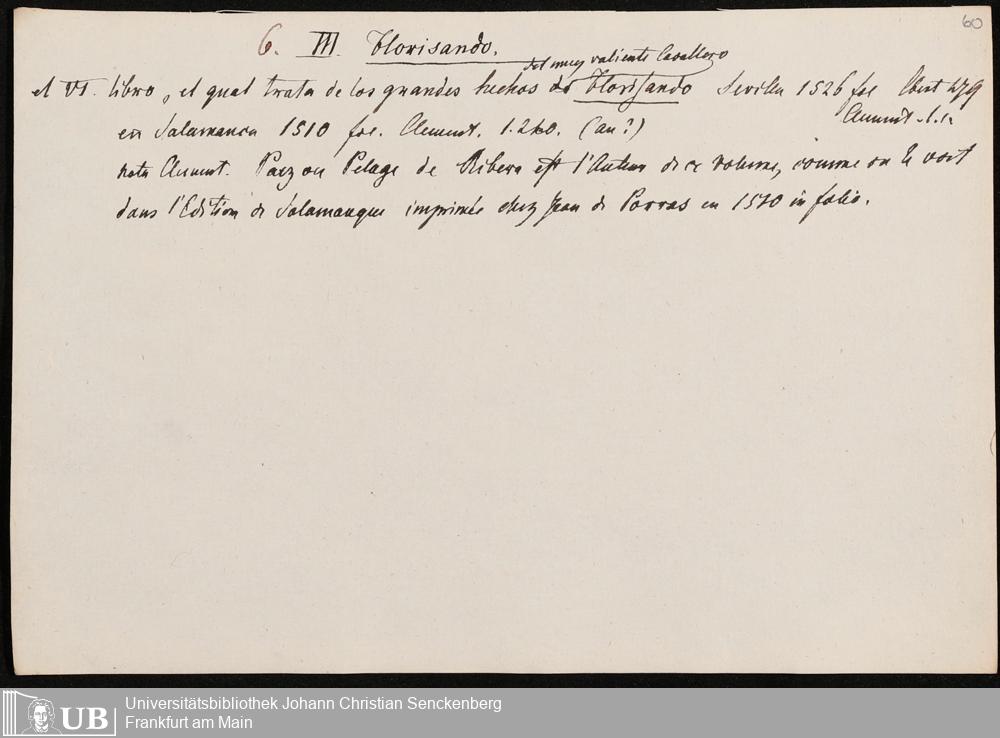 60
6. III. Florisando.
del muy valiente Cavallero
el VI. libro, el qual trata de los grandes hechos de Florisando Sevilla 1526 fol Ebert 479
Clement. l. c.
en Salamanca 1510 fol. Clement. 1.240. (an?)
nota Clement. Paez ou Pelage de Ribera est l'Auteur de ce volume, comme on le voit
dans l'Edition de Salamanque imprimée chez Jean de Porras en 1510 in folio.
Universitätsbibliothek Johann Christian Senckenberg
Frankfurt am Main
UB